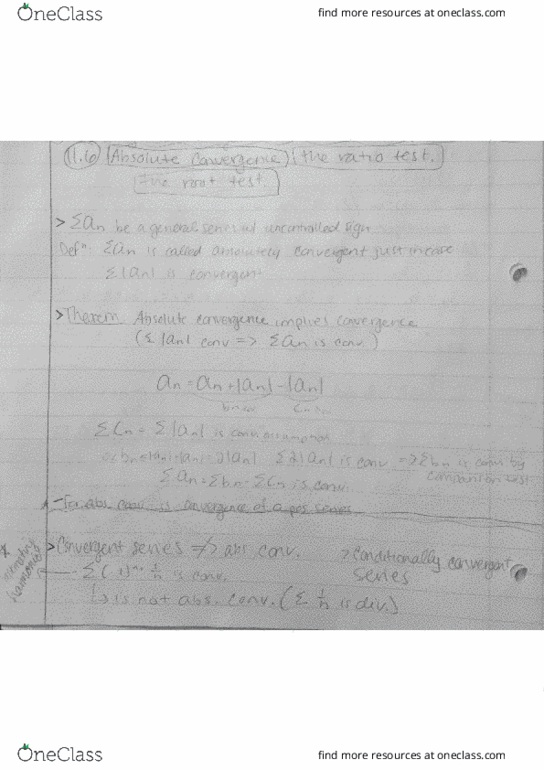 OneClass
find more resources at oneclass.com
11.6 Absolute Convergence; the ratio test.
the root test.
> Σan be a general series w/ uncontrolled sign
Defⁿ: Σan is called absolutely convergent just in case
Σ|an| is convergent
> Theorem Absolute convergence implies convergence
(Σ|an| conv => Σan is conv)
an = an + |an| - |an|
bn
cn
Σcn = Σ|an| is conv assumption
|an| = 2|an| Σ2|an| is conv => Σbn is conv by
comparison test
Σan = Σbn - Σcn is conv.
* abs conv is convergence of a pos series
* alternating harmonic
> Convergent series ≠> abs conv. > conditionally convergent
series
Σ(-1) 1/n is conv.
↳ is not abs. conv. (Σ 1/n is div.)
OneClass
find more resources at oneclass.com